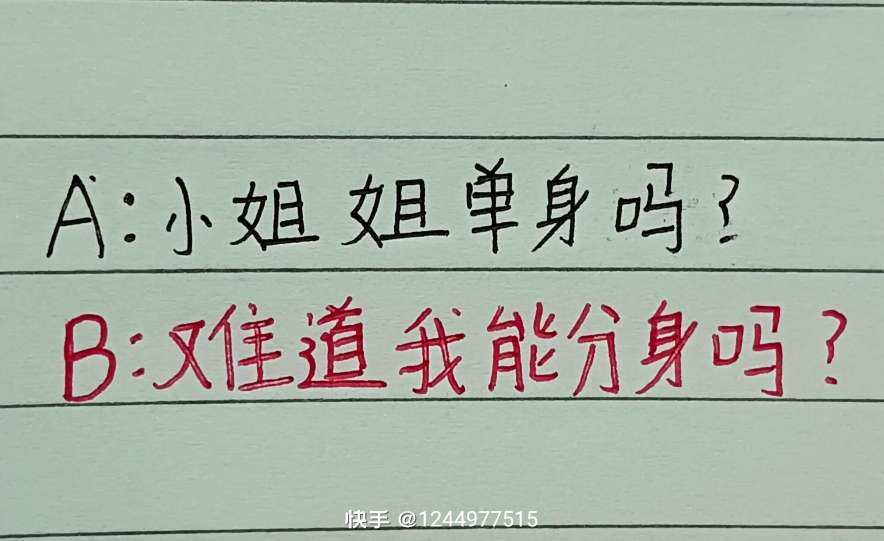 A:小姐姐单身吗?
B:难道我能分身吗?
快手 @1244977515